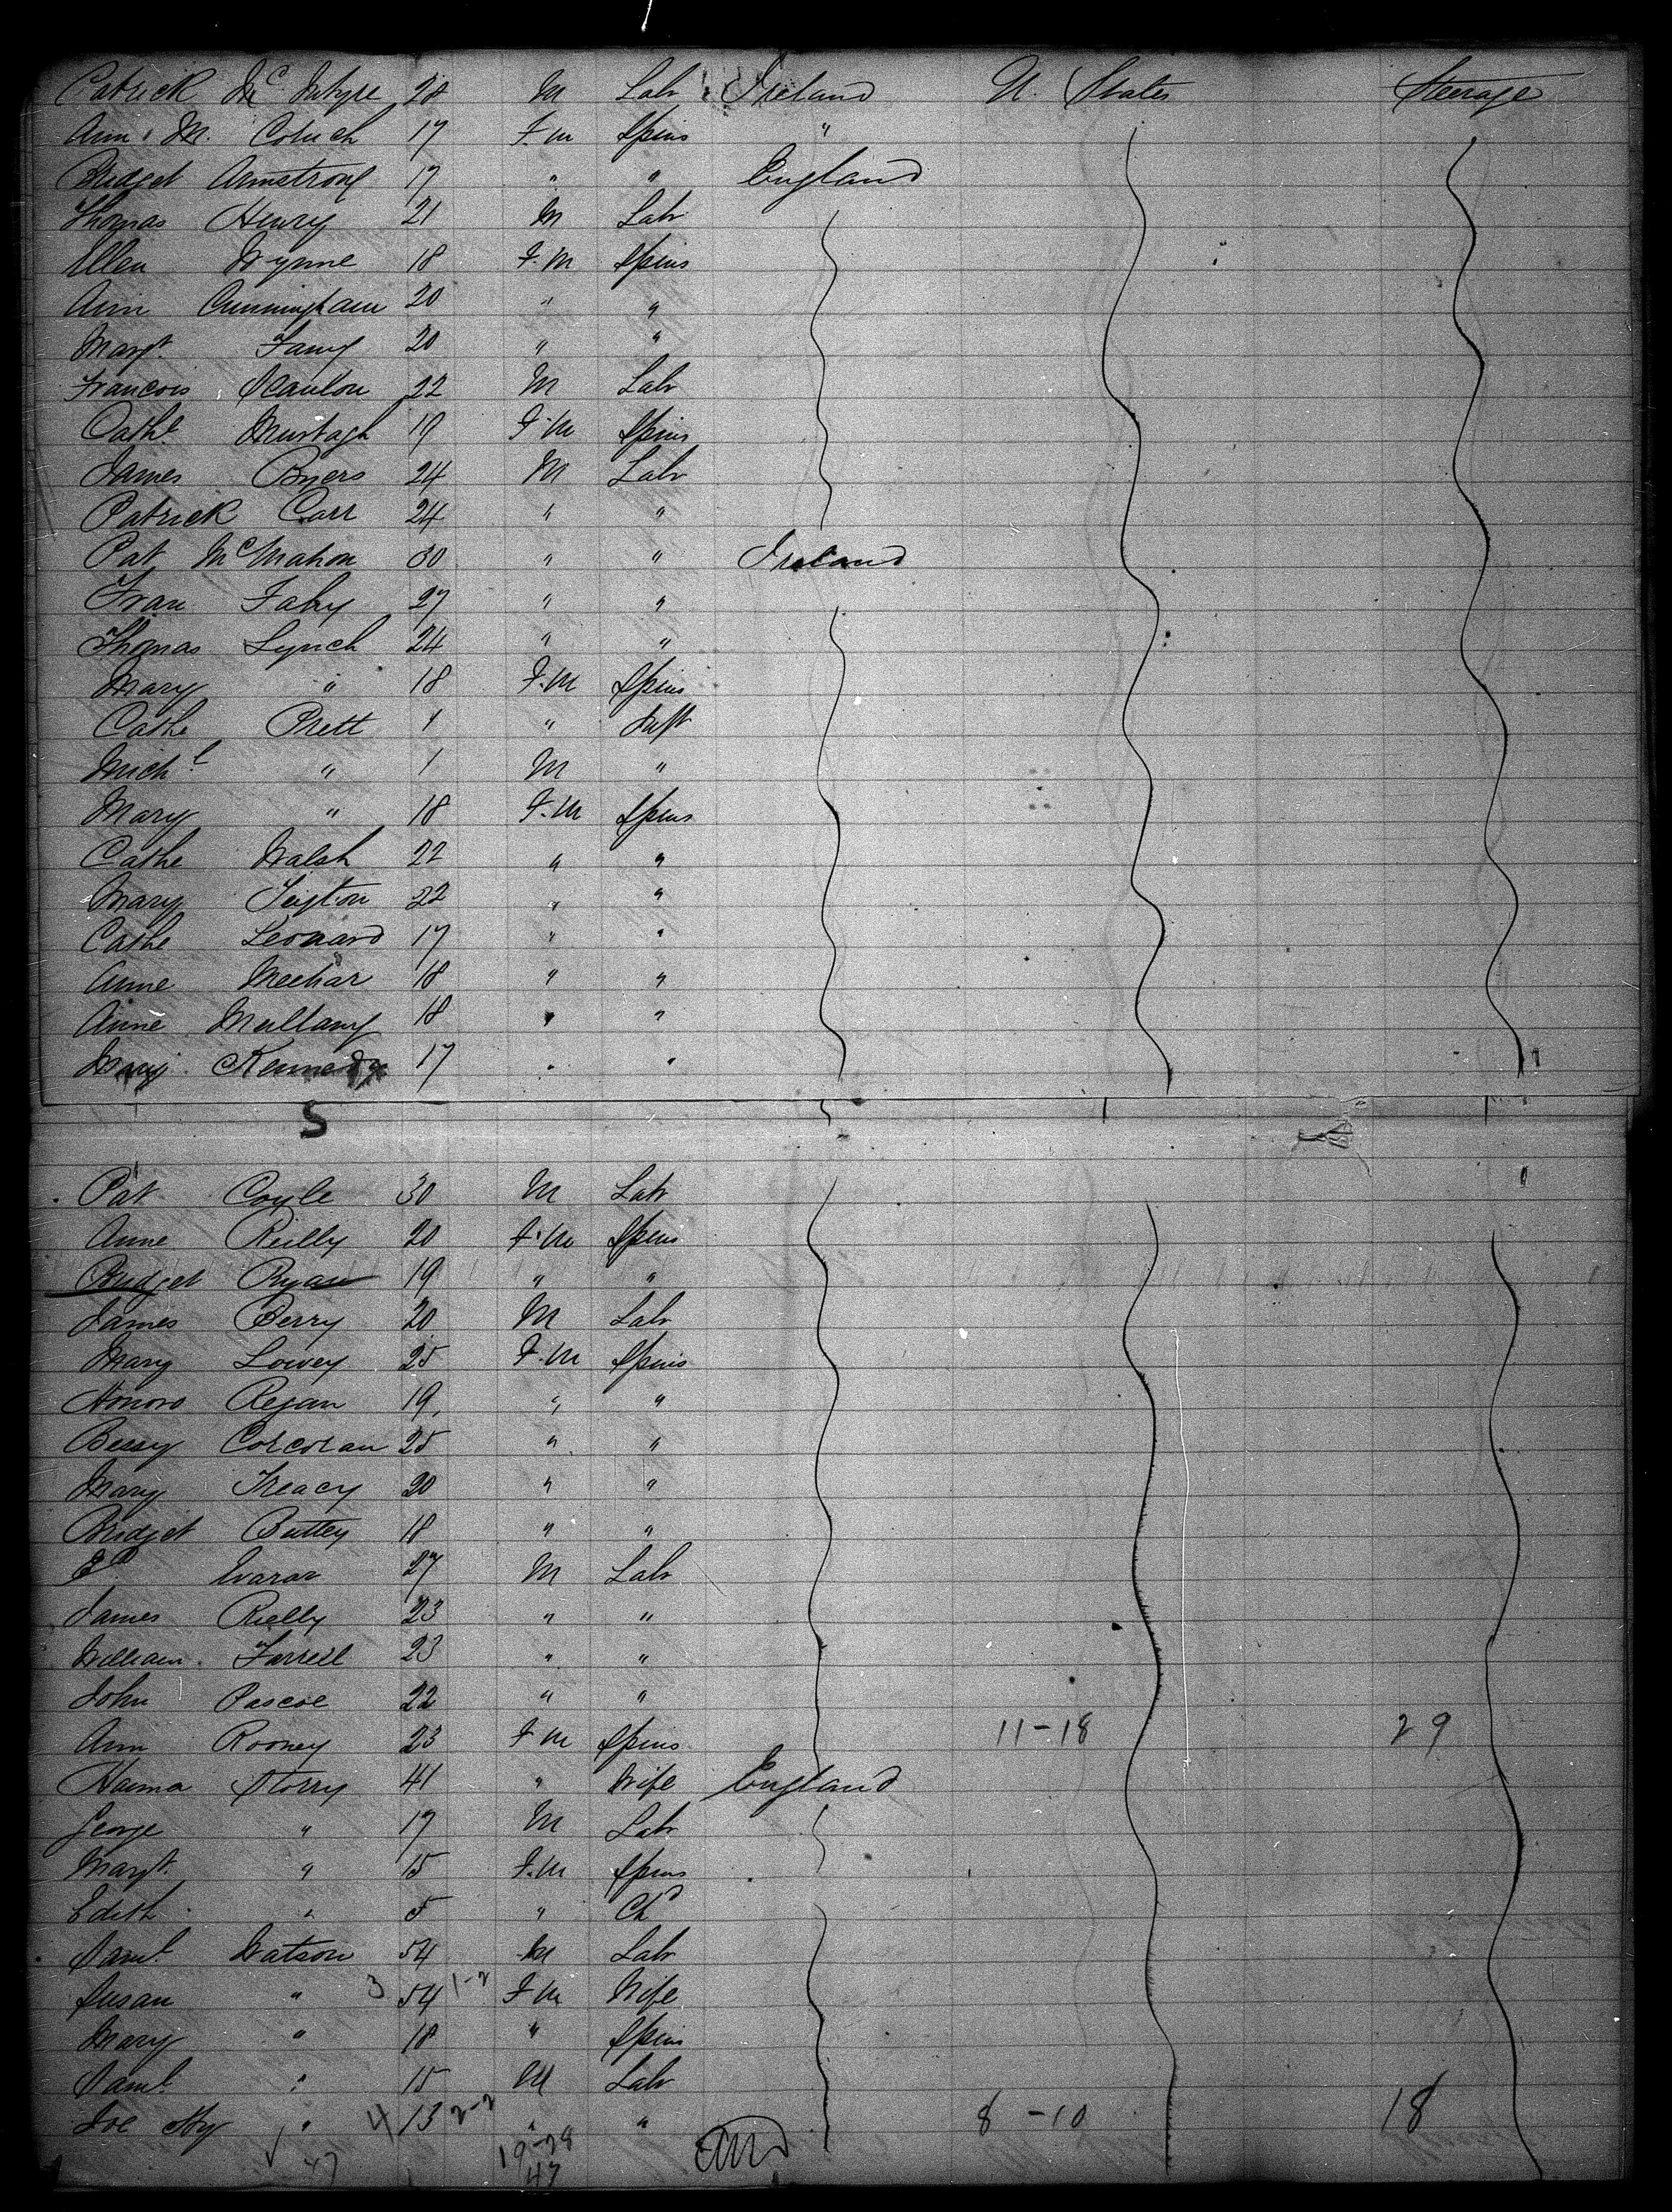 Patrick McIntyre 28 M Lab Ireland U. States Steerage
Ann M. 17 F.m Spins "
Bridget Armstrong 17 " " England
Thomas Henry 21 M Lab
Ellen Wynne 18 F.M Spins
Ann Cunningham 20 " "
Margt. 20 " "
Francois Scanlon 22 M Lab
Cathe Murtagh 19 F.M Spins
James Byers 24 M Lab
Patrick Carr 24 " "
Pat McMahon 30 " " Ireland
Fran Fahy 27 " "
Thomas Lynch 24 " "
Mary " 18 F.M Spins
Cathe Prett 1 " Inft
Michl " 1 M "
Mary " 18 F.M Spins
Cathe Walsh 22 " "
Mary 22 " "
Cathe Leonard 17 " "
Anne Meehar 18 " "
Anne Mullany 18 " "
Mary Kennedy 17 " "
S
Pat Coyle 30 M Lab
Anne Reilly 20 F.M Spins
Bridget Ryan 19 " "
James Berry 20 M Lab
Mary Lowey 25 F.M Spins
Honoro Regan 19 " "
Bessy Corcoran 25 " "
Mary Treacy 20 " "
Bridget Buttey 18 " "
Ed 27 M Lab
James Rielly 23 " "
William Farrell 23 " "
John Pascoe 22 " "
Ann Rooney 23 F M Spins 11-18 29
Storry 41 " Wife England
George " 17 M Lab
Margt. " 15 F.M Spins
Edith " 5 " Chd
Saml. Watson 54 M Lab
Susan " 3 54 1-2 F M Wife
Mary " 18 " Spins
Saml. " 15 M Lab
Joe Hy " 4 13 2-2 " " 8-10 18
47 19-28
47